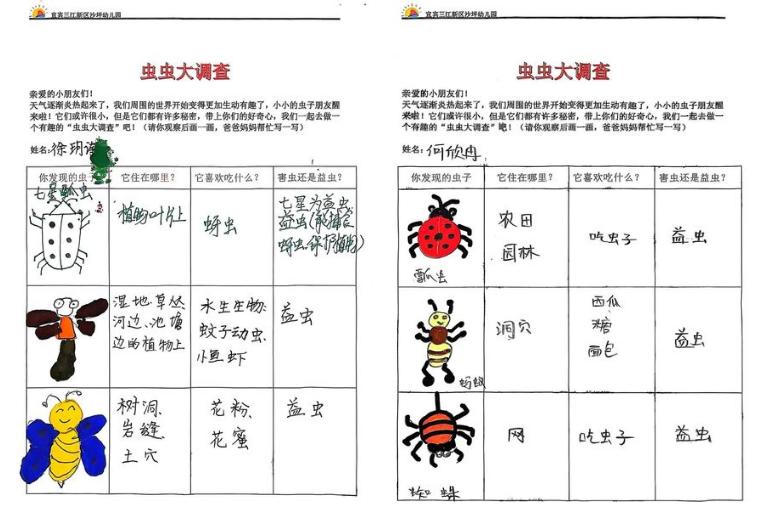 宜宾三江新区沙坪幼儿园
虫虫大调查
亲爱的小朋友们！
天气逐渐炎热起来了，我们周围的世界开始变得更加生动有趣了，小小的虫子朋友醒
来啦！它们或许很小，但是它们都有许多秘密，带上你们的好奇心，我们一起去做一
个有趣的“虫虫大调查”吧！（请你观察后画一画，爸爸妈妈帮忙写一写）
姓名：徐玥
你发现的虫子 它住在哪里？ 它喜欢吃什么？ 害虫还是益虫？
七星瓢虫
植物叶片上
蚜虫
七星为益虫
益虫(能捕食
蚜虫保护植物)
湿地、草丛
河边、池塘
边的植物上
水生生物、
蚊子动虫、
小鱼虾
益虫
树洞、
岩缝、
土穴
花粉、
花蜜
益虫
宜宾三江新区沙坪幼儿园
虫虫大调查
亲爱的小朋友们！
天气逐渐炎热起来了，我们周围的世界开始变得更加生动有趣了，小小的虫子朋友醒
来啦！它们或许很小，但是它们都有许多秘密，带上你们的好奇心，我们一起去做一
个有趣的“虫虫大调查”吧！（请你观察后画一画，爸爸妈妈帮忙写一写）
姓名：何欣冉
你发现的虫子 它住在哪里？ 它喜欢吃什么？ 害虫还是益虫？
瓢虫
农田
园林
吃虫子
益虫
蚂蚁
洞穴
西瓜
糖
面包
益虫
蜘蛛
网
吃虫子
益虫